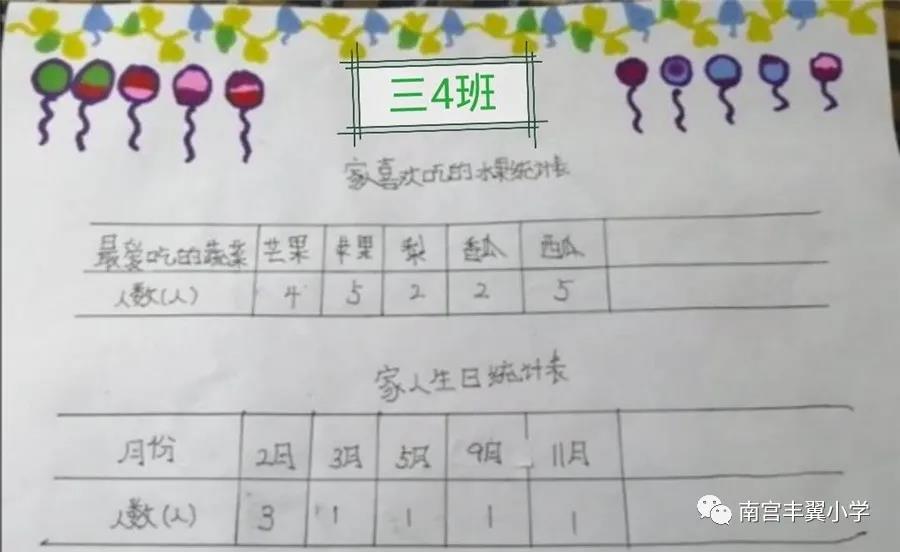 三4班
家喜欢吃的水果统计表
最爱吃的蔬菜 芒果 苹果 梨 香瓜 西瓜
人数(人) 4 5 2 2 5
家人生日统计表
月份 2月 3月 5月 9月 11月
人数(人) 3 1 1 1 1
南宫丰翼小学